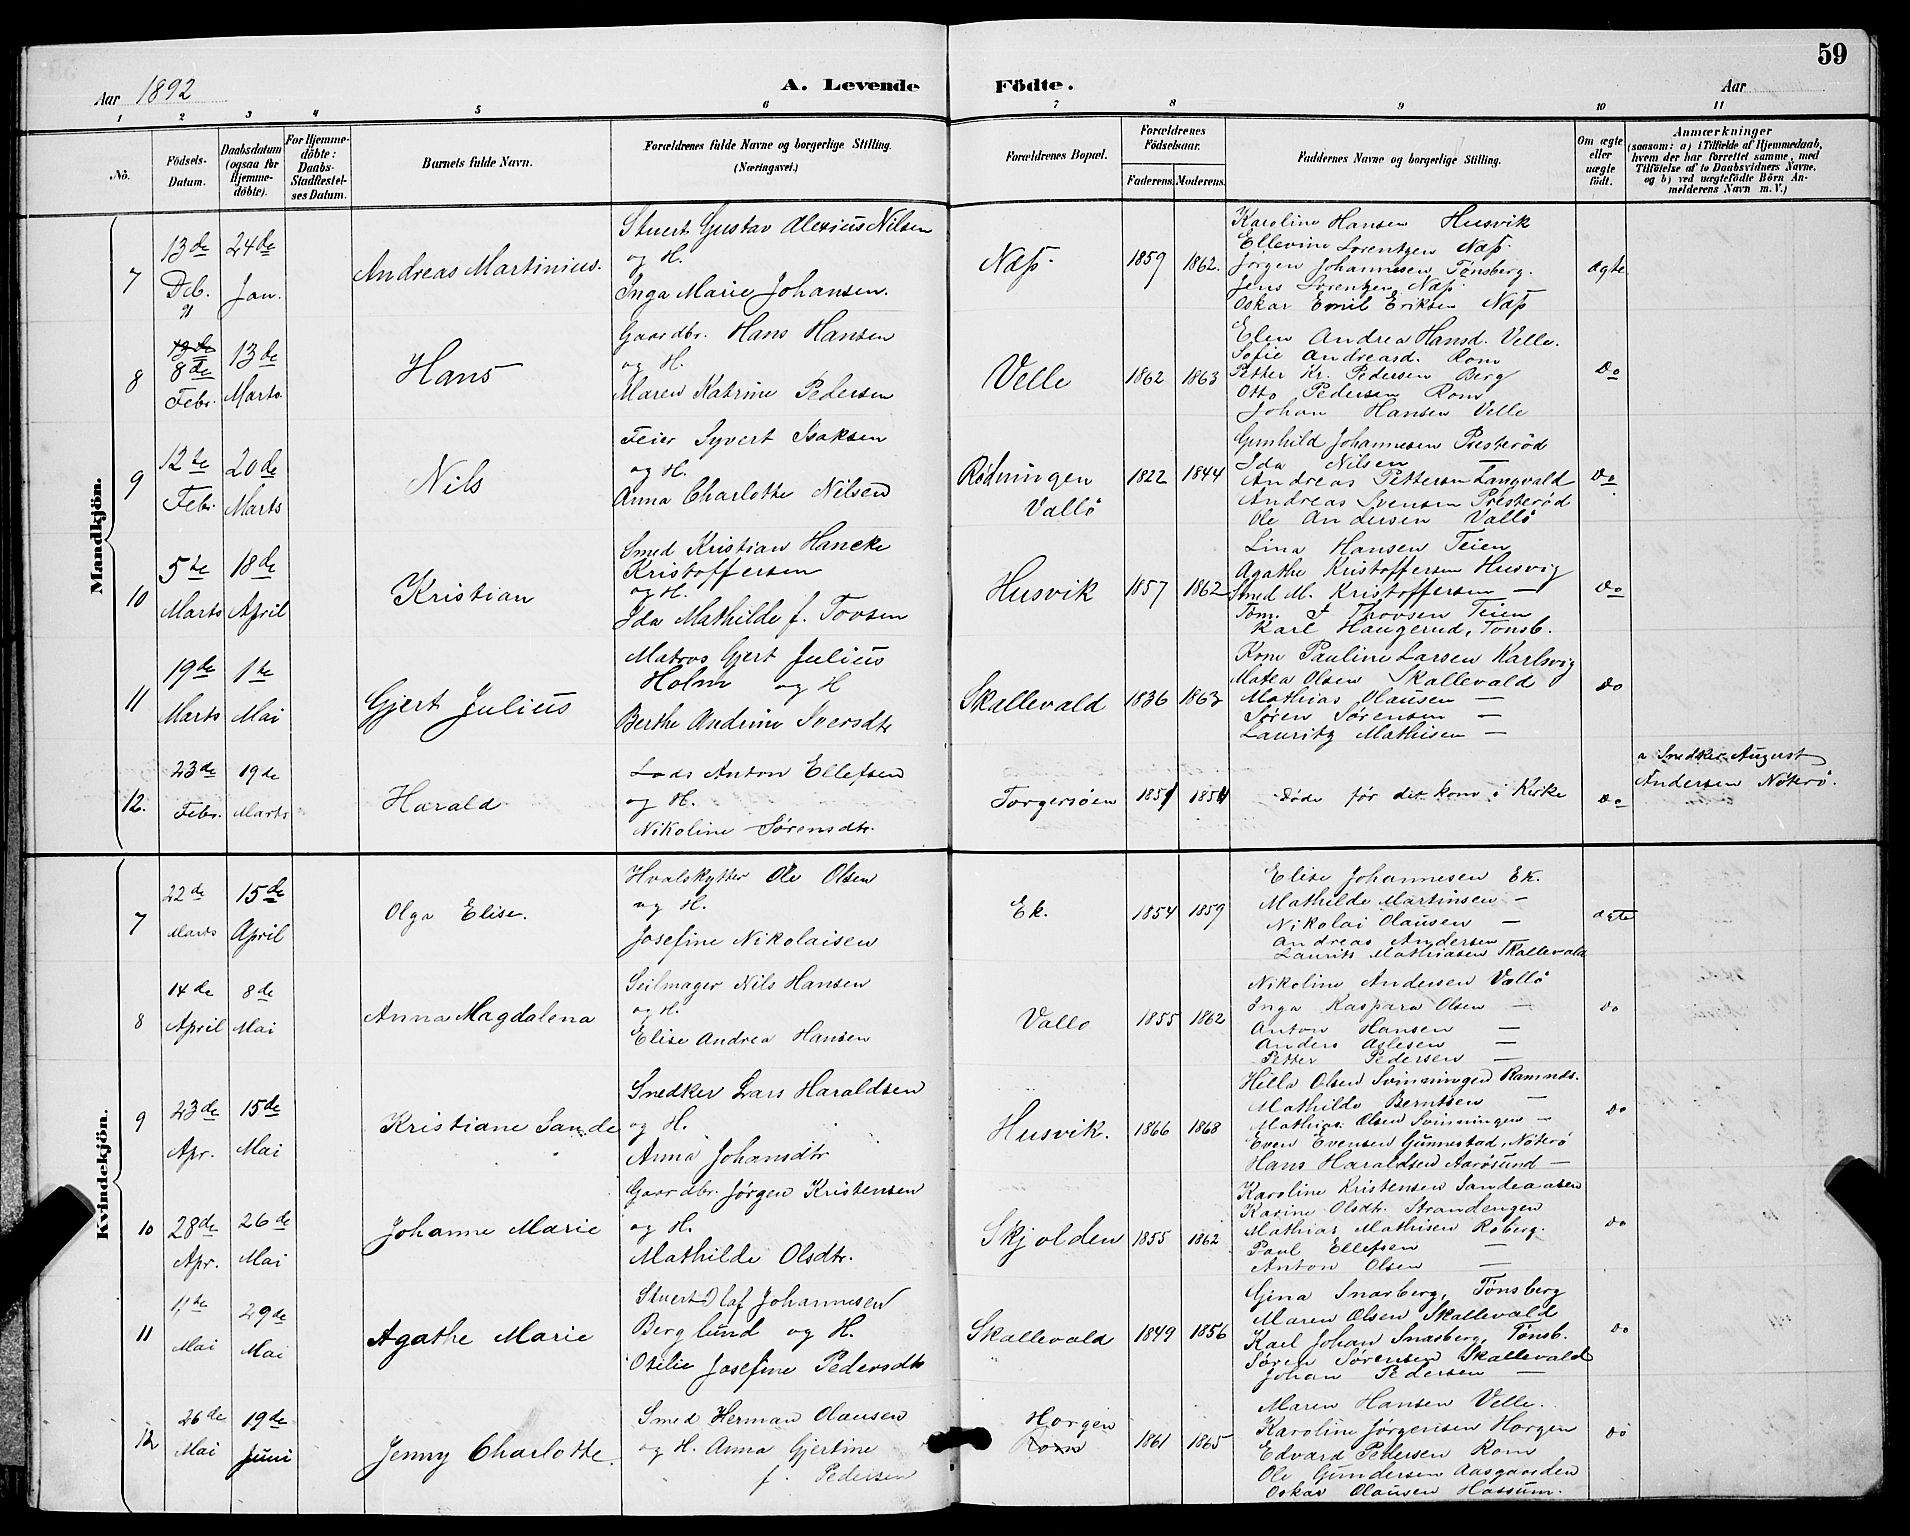 59
Aar 1892
A. Levende Födte.
Aar
1 2 3 4 5 6 7 8 9 10 11
No.
Födsels-Datum.
Daabsdatum (ogsaa for Hjemmedöbte).
For Hjemmedöbte: Daabs-Stadfæstelses Datum.
Barnets fulde Navn.
Forældrenes fulde Navne og borgerlige Stilling. (Næringsvei.)
Forældrenes Bopæl.
Forældrenes Födselsaar.
Faderens. Moderens.
Faddernes Navne og borgerlige Stilling.
Om ægte eller uægte födt.
Anmærkninger
(saasom: a) i Tilfælde af Hjemmedaab,
hvem der har forrettet samme, med
Tilföielse af to Daabsvidners Navne,
og b) ved uægtefödte Börn An-
melderens Navn m. V.)
Mandkjön.
7
13de Deb. 91
24de Jan.
Andreas Martinius.
Stuert Gustav Alexius Nilsen
og H.
Inga Marie Johansen.
Næss.
1859 1862.
Karoline Hansen Husvik
Ellevine Lorentzen Næss.
Jørgen Johannesen Tønsberg.
Jens Lorentzen Næss.
Oskar Emil Eriksen Næss
ægte
8
13de
8de Febr.
13de Marts
Hans
Gaardbr. Hans Hansen
og H.
Maren Katrine Pedersen
Velle
1862 1863
Elen Andrea Hansd. Velle.
Sofie Andreasd. Rom
Petter Kr. Pedersen Berg
Otto Pedersen Rom
Johan Hansen Velle
Do
9
12te Febr.
20de Marts
Nils
Feier Syvert Isaksen
og H.
Anna Charlotte Nilsen
Rødningen
Vallö
1822 1844
Gunhild Johannesen Presterød
Ida Nilsen —
Andreas Pettersen Langvald
Andreas Svensen Presterød
Ole Andersen Vallö
Do
10
5te Marts
18de April
Kristian
Smed Kristian Hancke
Kristoffersen
og H.
Ida Mathilde f. Tovsen
Husvik
1857 1862
Lina Hansen Teien
Agathe Kristoffersen Husvig
Smed M. Kristoffersen —
Tom. F. Thovsen Teien
Karl Haugerud, Tønsb.
Do
11
19de Marts
1te Mai
Gjert Julius
Matros Gjert Julius
Holm og H
Berthe Andrine Iversdtr
Skallevald
1836 1863
Kone Pauline Larsen Karlsvig
Matea Olsen Skallevald
Mathias Olausen —
Søren Sørensen —
Lauritz Mathisen —
Do
12.
23de Febr.
19de Marts
Harald
Lods Anton Ellefsen
og H.
Nikoline Sørensdtr.
Torgersøen
1851 1851
Døde før det kom i Kirke
Do
a. Snedker August
Andersen Nøterø.
Kvindekjön.
7
22de Marts
15de April
Olga Elise.
Hvalskytter Ole Olsen
og H.
Josefine Nikolaisen
Ek.
1854 1859
Elise Johannesen Ek.
Mathilde Martinsen —
Nikolai Olausen —
Andreas Andersen —
Laurits Mathiasen Skallevald
ægte
8
14de April
8de Mai
Anna Magdalena
Seilmager Nils Hansen
og H.
Elise Andrea Hansen
Vallo
1855 1862
Nikoline Andersen Vallö
Inga Kaspara Olsen —
Anton Hansen —
Anders Aslesen —
Petter Pedersen —
Do
9
23de Apr.
15de Mai
Kristiane Sande
Snedker Lars Haraldsen
og H.
Anna Johansdtr
Husvik.
1866 1868
Hilla Olsen Svinningen Ramnds.
Mathilde Berntsen —
Mathias Olsen Svinningen —
Even Evensen Gunnestad, Nøterø
Hans Haraldsen Aarøsund —
Do
10
28de Apr.
26de Mai
Johanne Marie
Gaardbr. Jørgen Kristensen
og H.
Mathilde Olsdtr.
Skjolden
1855 1862
Karoline Kristensen Sandeaasen
Karine Olsdtr. Strandengen
Mathias Mathisen Roberg.
Paul Ellefsen —
Anton Olsen —
Do
11
11te Mai
29de Mai
Agathe Marie
Stuert Olaf Johannesen
Berglund og H.
Otilie Josefine Pedersdtr
Skallevald
1849 1856
Gina Snarberg, Tønsberg
Maren Olsen Skallevald
Karl Johan Snarberg, Tønsb.
Søren Sørensen Skallevald
Johan Pedersen —
Do
12
26de Mai
19de Juni
Jenny Charlotte.
Smed Herman Olausen
og H. Anna Gjertine
f. Pedersen
Horgen
Rom
1861 1865
Maren Hansen Velle.
Karoline Jørgensen Horgen
Edvard Pedersen Rom
Ole Gundersen Aasgaarden
Oskar Olausen Hassum.
Do